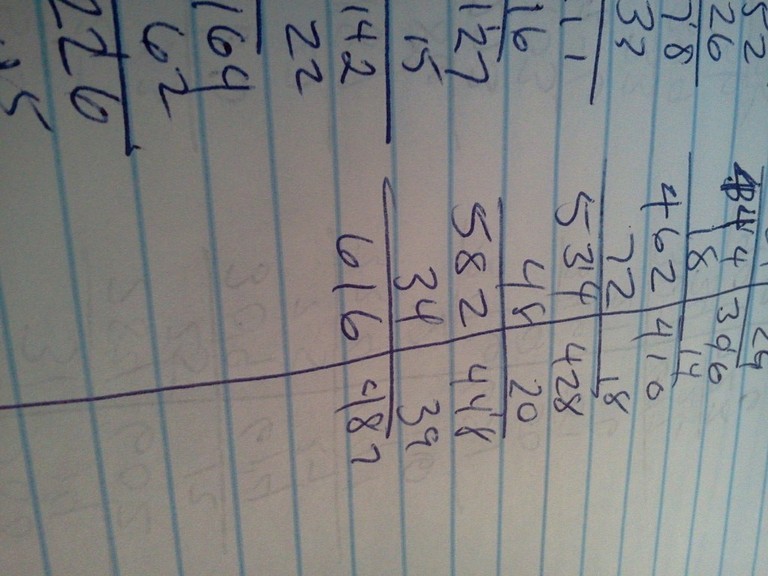 29
52 444 396
26 18 14
78 462 410
33 72 18
11 534 428
16 48 20
127 582 448
15 34 39
142 616 487
22
164
62
226